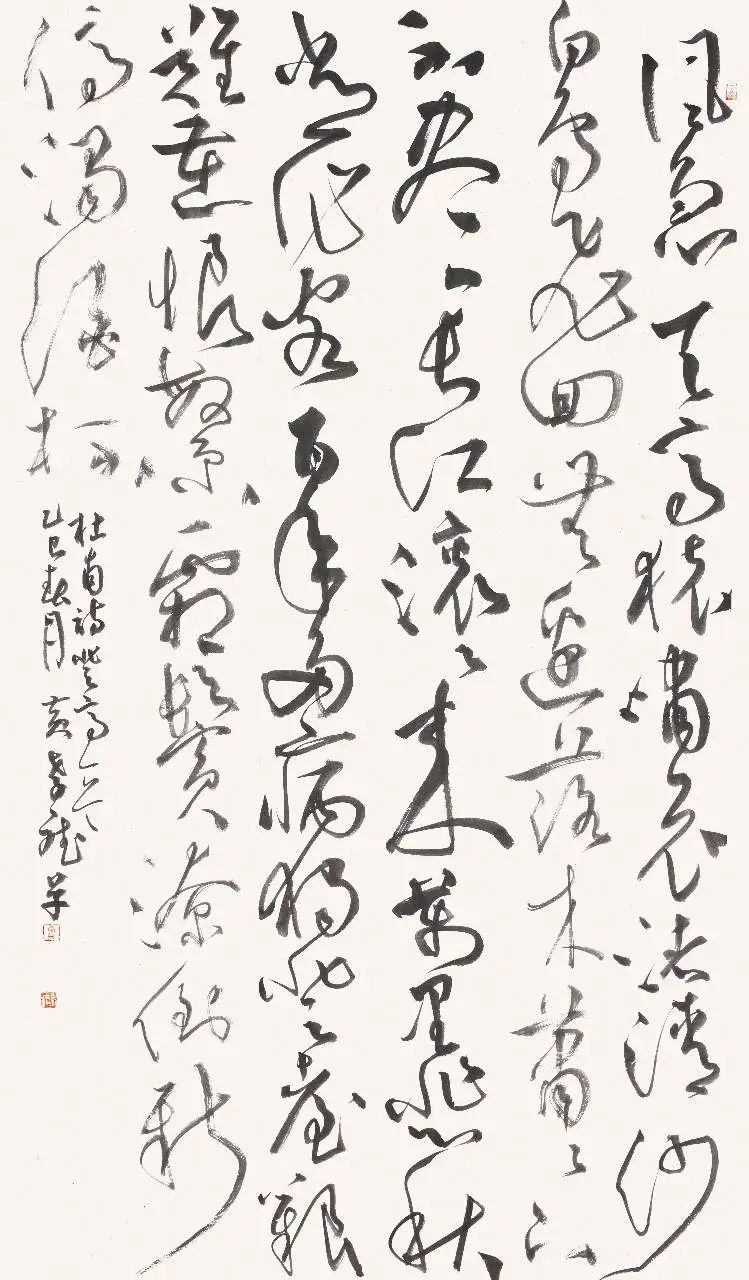 風急天高猿嘯哀渚清沙
白鳥飛回無邊落木蕭〻下
不盡長江滾〻來萬里悲秋
常作客百年多病獨登臺艱
難苦恨繁霜鬢潦倒新
停濁酒杯
杜甫詩登高一首
乙巳春月 黃孝